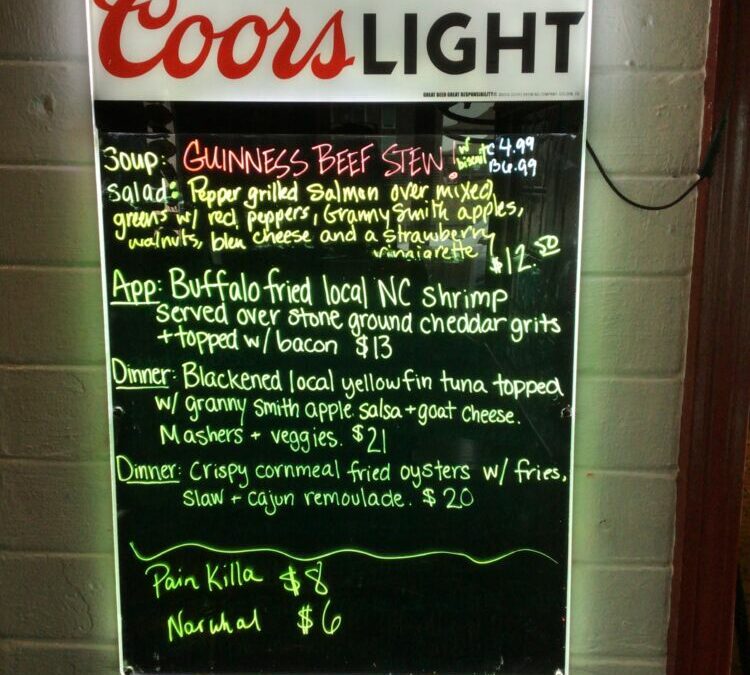 Coors LIGHT
GREAT BEER GREAT RESPONSIBILITY®
Soup: GUINNESS BEEF STEW! w/ biscuit C 4.99
B 6.99
Salad: Pepper grilled Salmon over mixed
greens w/ red peppers, Granny Smith apples,
walnuts, bleu cheese and a strawberry
vinaigrette $12.50
App: Buffalo fried local NC shrimp
served over stone ground cheddar grits
+ topped w/ bacon $13
Dinner: Blackened local yellowfin tuna topped
w/ granny smith apple salsa + goat cheese.
Mashers + veggies. $21
Dinner: Crispy cornmeal fried oysters w/ fries,
slaw + cajun remoulade. $20
Pain Killa $8
Narwhal $6